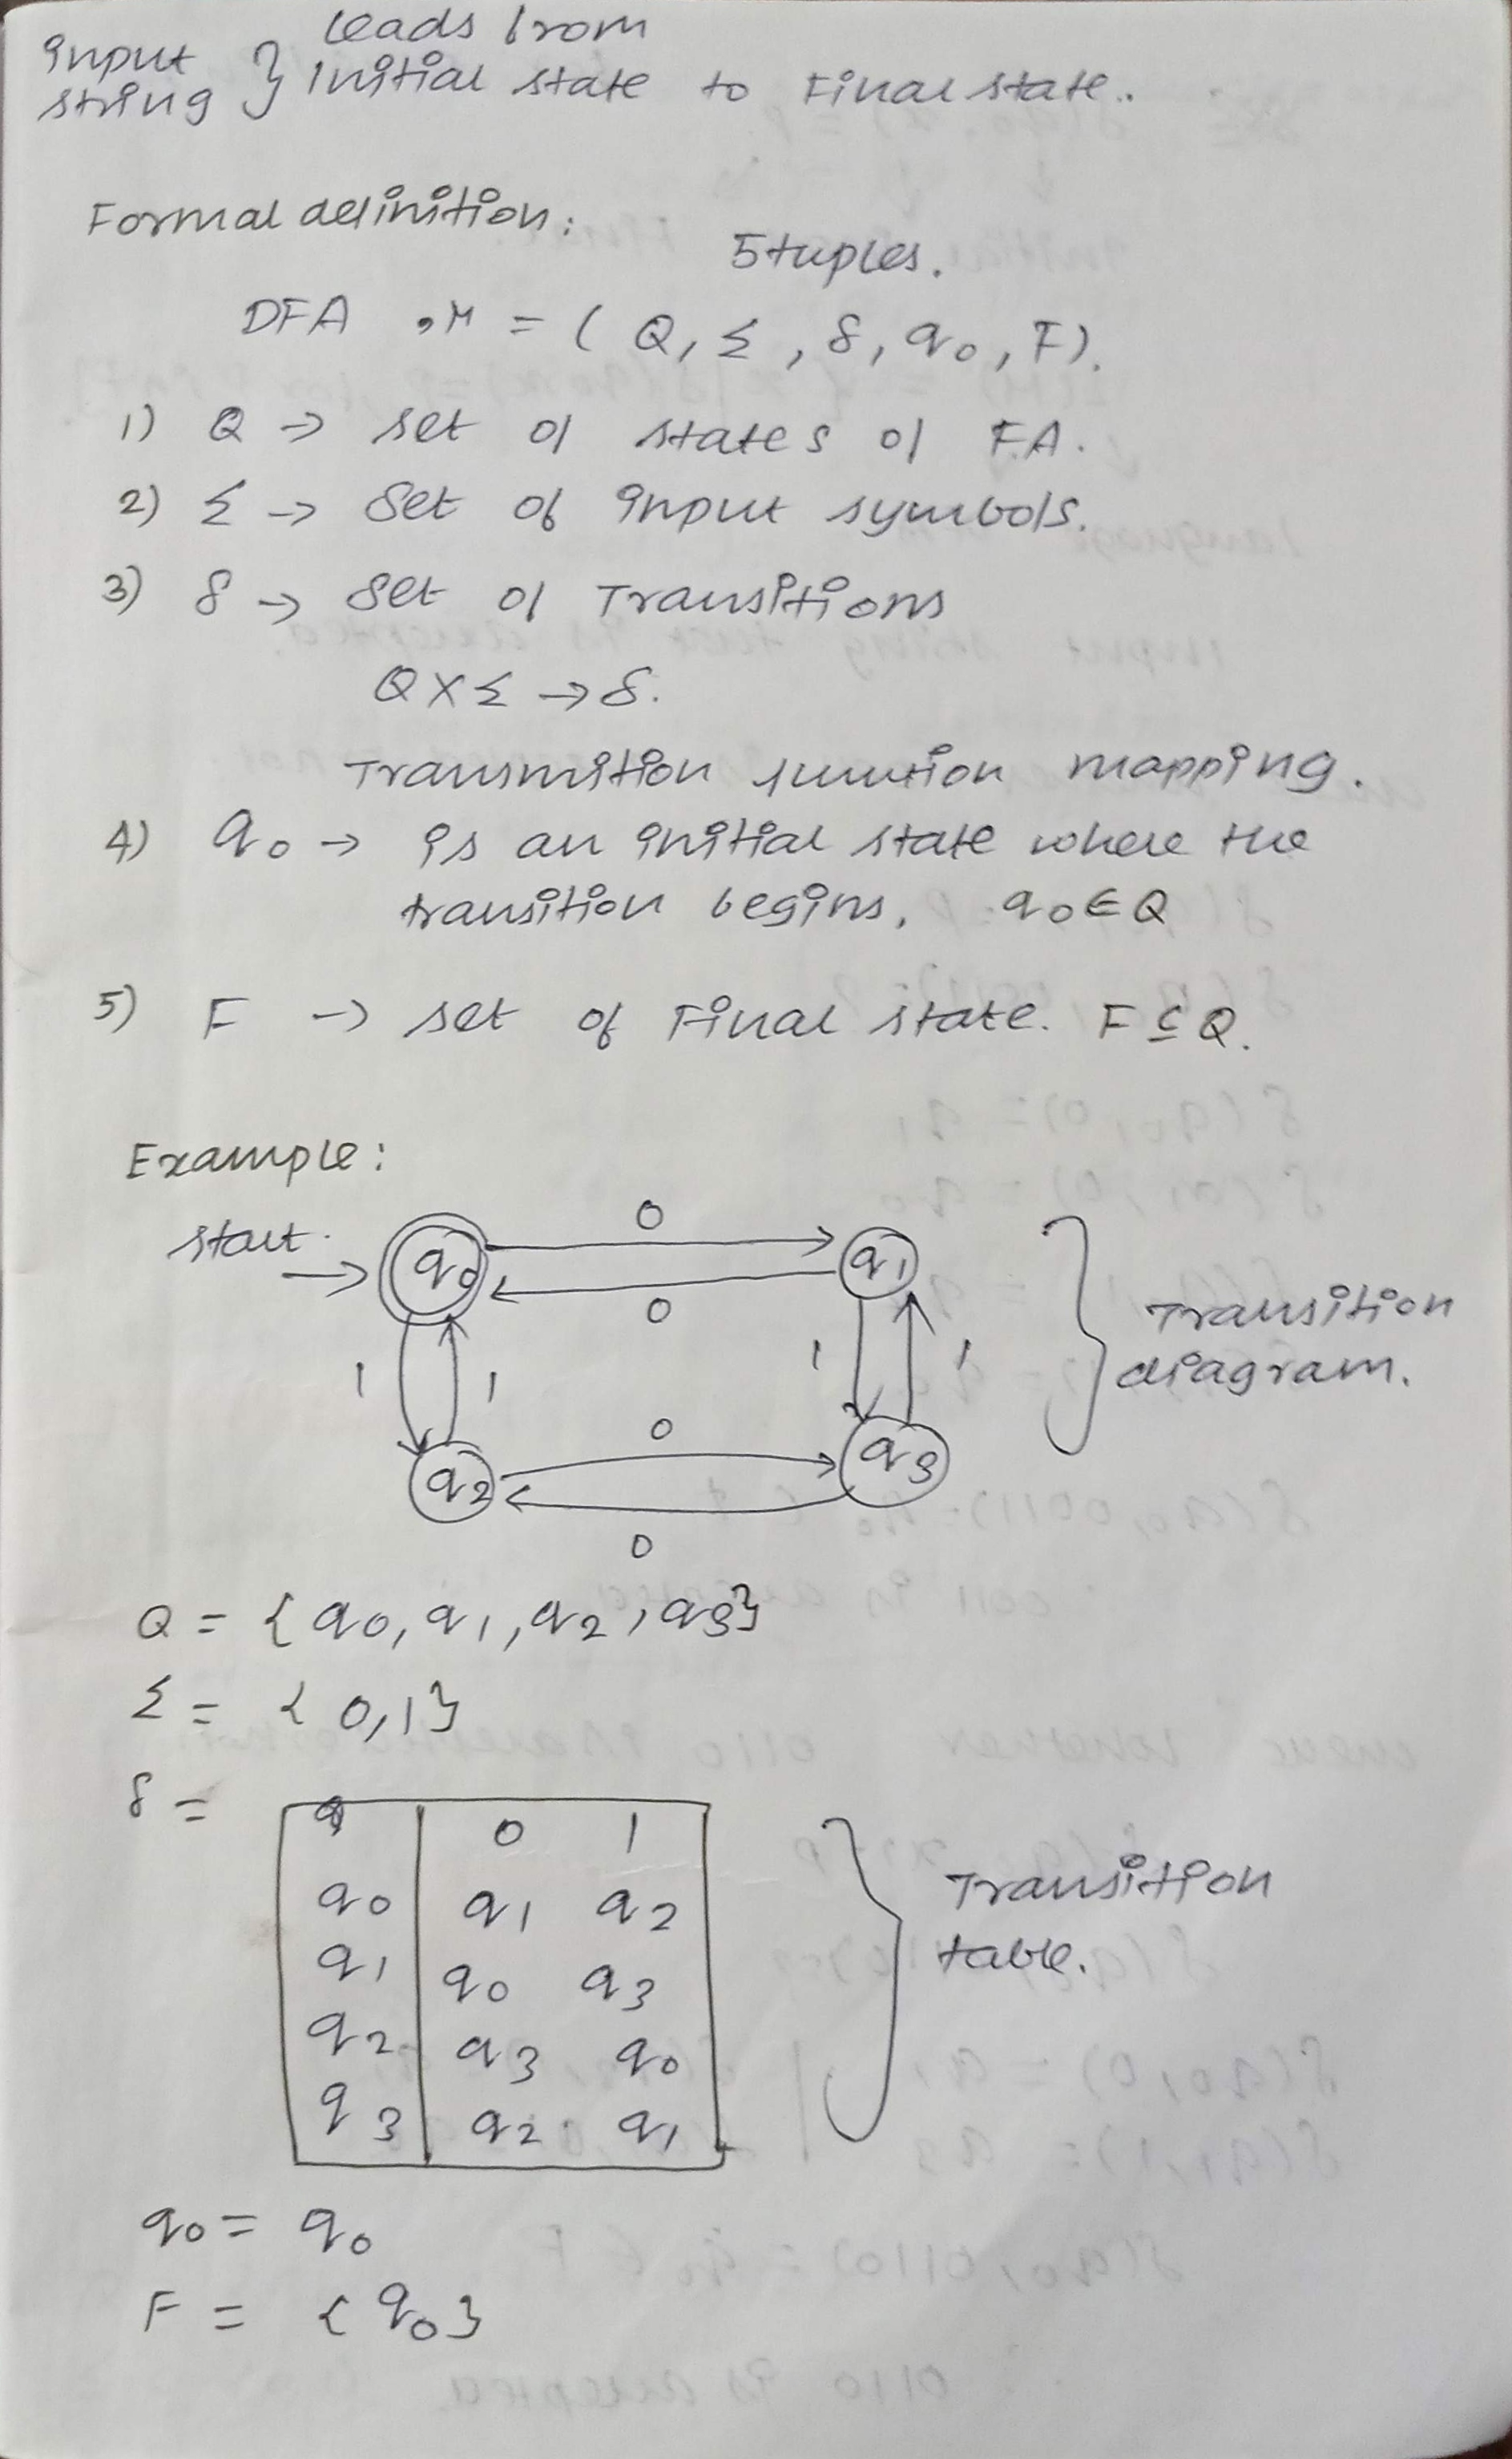 leads from
input
string } initial state to Final state.
Formal definition:
5 tuples.
DFA , M = ( Q, Σ, δ, q0, F).
1) Q → set of states of F.A.
2) Σ → Set of input symbols.
3) δ → Set of Transitions
Q X Σ → δ.
Transmition function mapping.
4) q0 → is an initial state where the
transition begins, q0 ∈ Q
5) F → set of Final state. F ⊆ Q.
Example:
start
q0 0 q1
0
1 1 1 1
Transition
diagram.
0
q2 q3
0
Q = {q0, q1, q2, q3}
Σ = {0,1}
δ =
q 0 1
q0 q1 q2
q1 q0 q3
q2 q3 q0
q3 q2 q1
Transition
table.
q0 = q0
F = {q0}